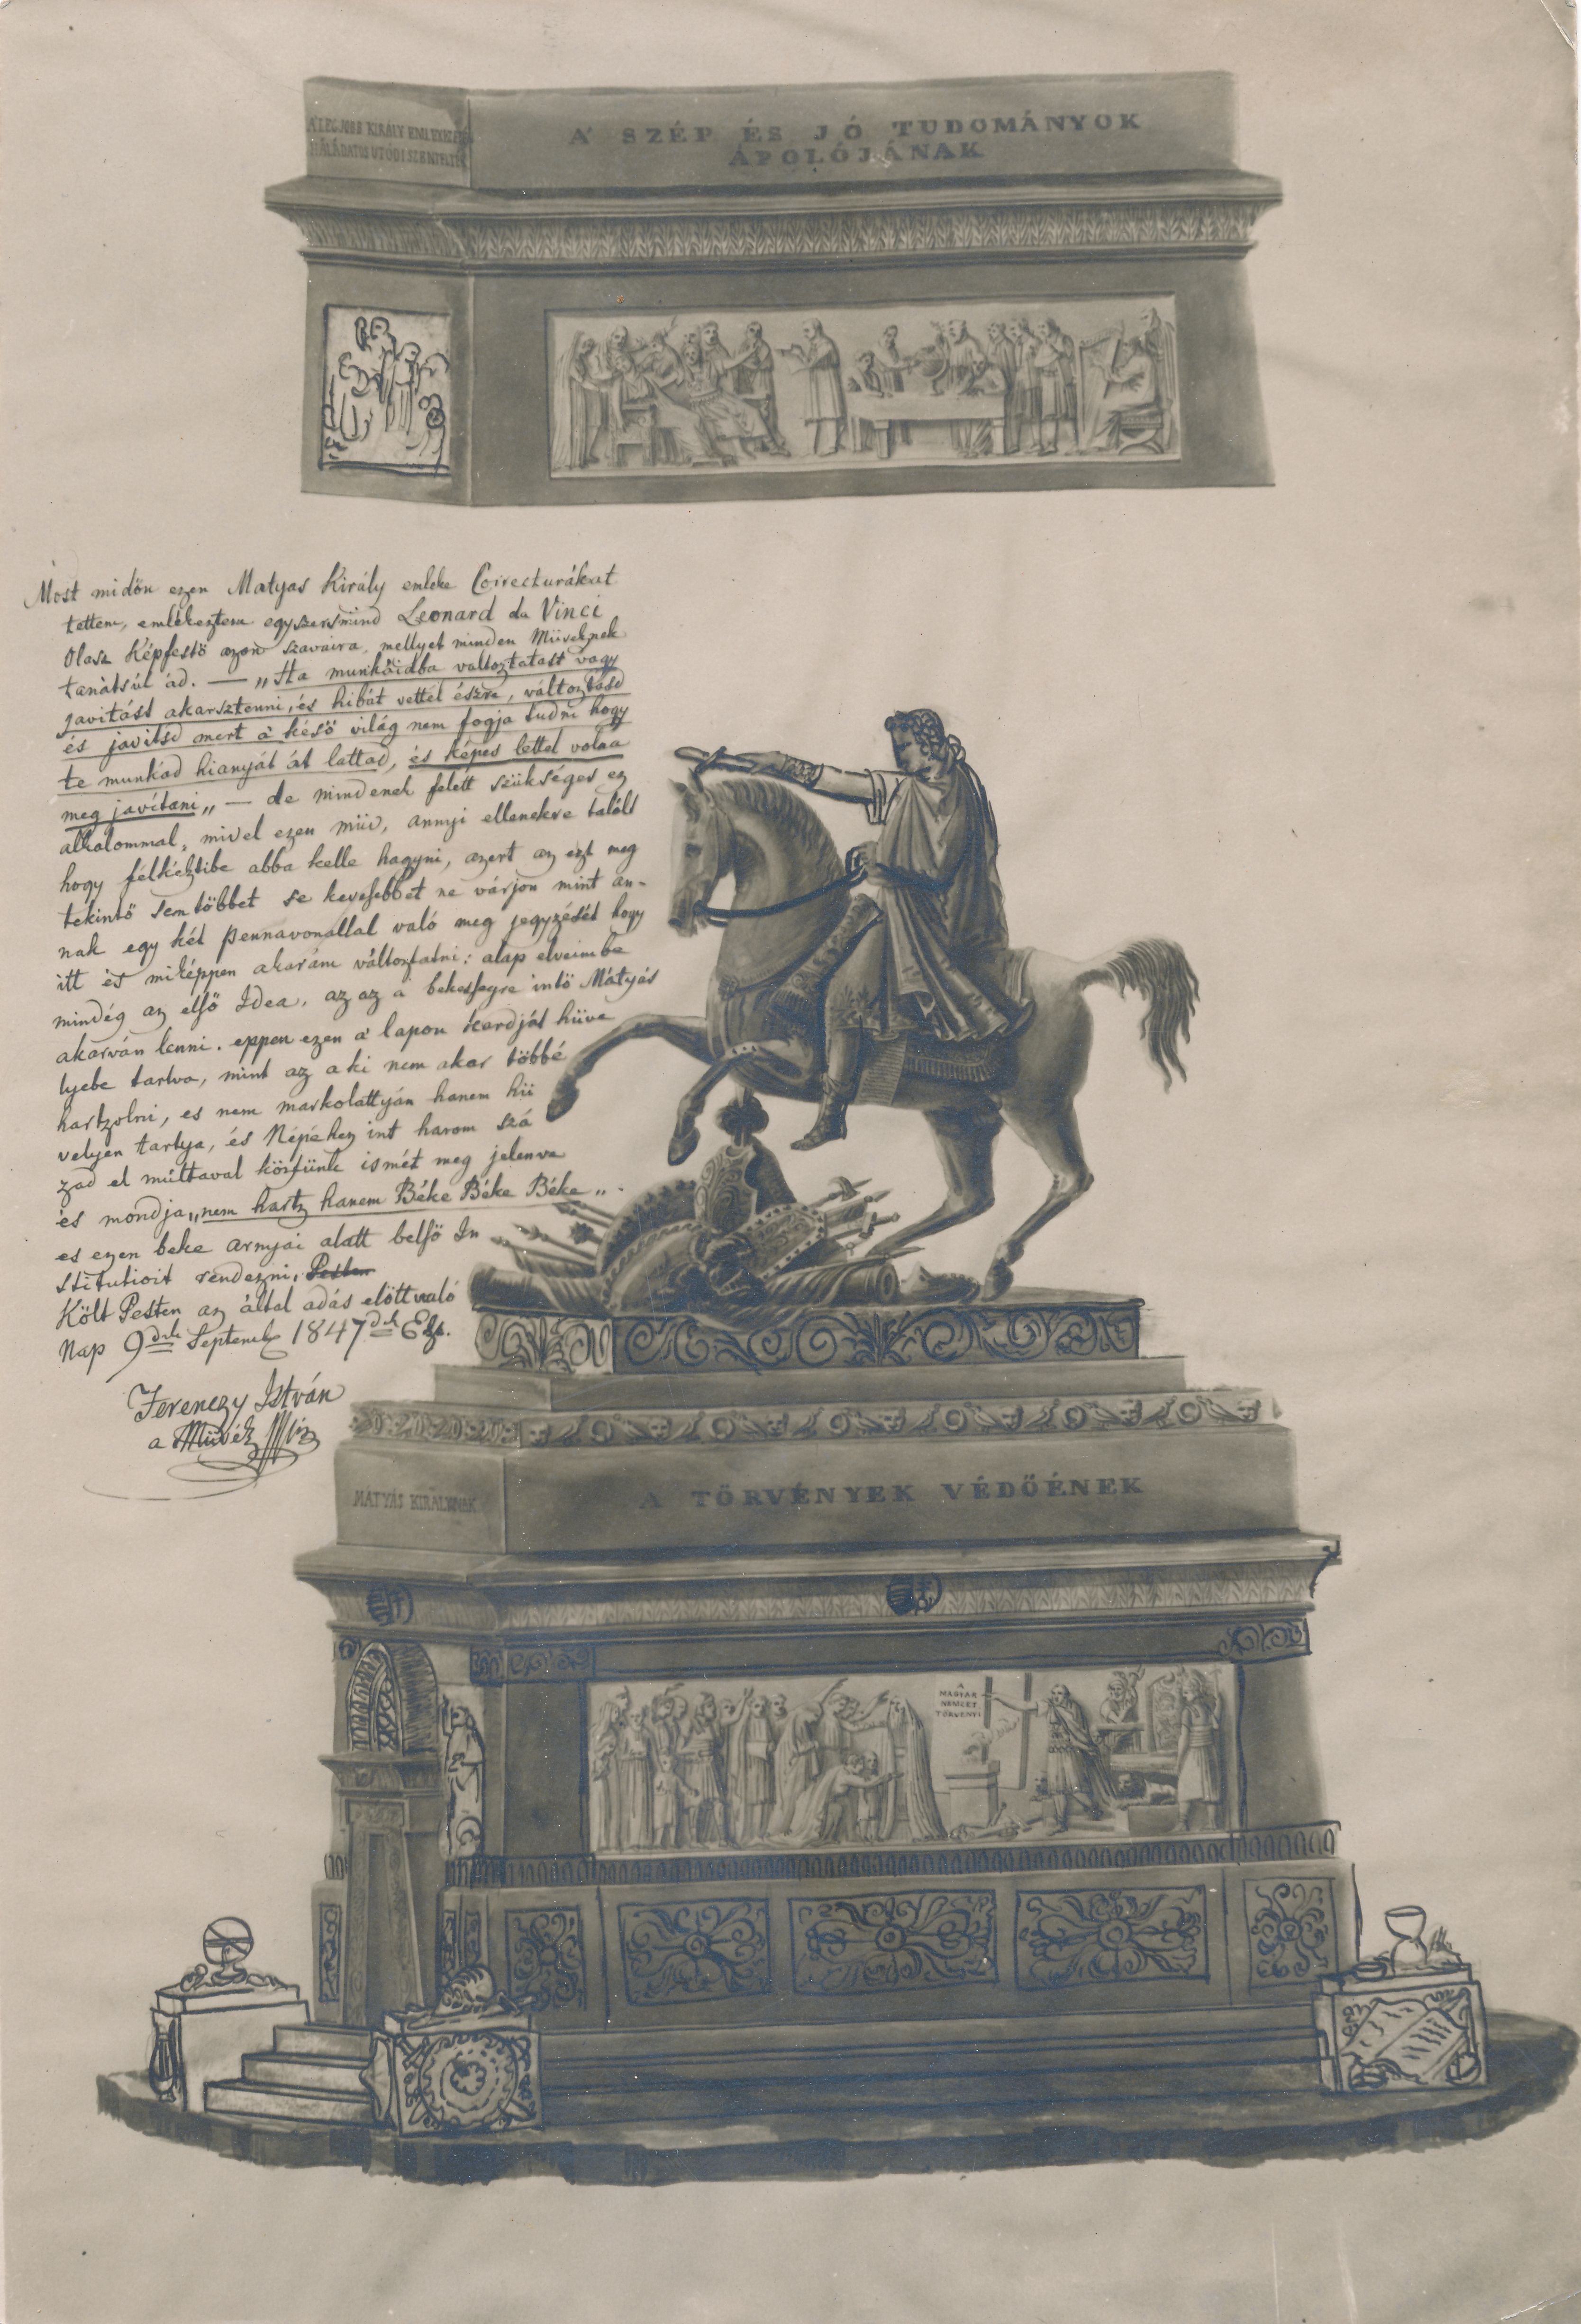 A' LEGJOBB KIRÁLY EMLÉKEZETÉRE
HÁLÁDATOS UTÓDI SZENTELTÉK
A' SZÉP ÉS JÓ TUDOMÁNYOK
ÁPOLÓJÁNAK
Most midőn ezen Matyas Király emleke Correcturákat
tettem, emlékeztem egyszersmind Leonard da Vinci
Olasz Képfestö azon szavaira, mellyet minden Müveknek
tanátsúl ád. — „Ha munkáidba valtoztatast vagy
javitást akarsztenni, és hibát vettél észre, változtasd
és javitsd mert a' késő világ nem fogja tudni hogy
te munkád hianyját át lattad, és képes lettél volna
meg javítani„ — de mindenek felett szükséges ez
alkalommal, mivel ezen müv, annyi ellenekre talált
hogy félkéztibe abba kelle hagyni, azert az ezt meg
tekintő sem többet se kevesebbet ne várjon mint an-
nak egy két pennavonallal való meg jegyzését hogy
itt és miképpen akarám változtatni: alap elveimbe
mindég az elsö Idea, az az a' bekessegre intö Mátyás
akarván lenni. eppen ezen a' lapon kardját hüve
lyebe tartva, mint az a ki nem akar többé
hartzolni, es nem markolattyán hanem hü
velyen tartya, és Népéhez int harom szá
zad el múltaval köztünk ismét meg jelenve
és mondja„nem hartz hanem Béke Béke Béke„.
es ezen beke arnyai alatt belsö In
stitutioit rendezni,
Költ Pesten az által adás elött való
Nap 9dik Septemb 1847dik Esz.
Ferenczy István
a Müvész
MÁTYÁS KIRÁLYNAK
A TÖRVÉNYEK VÉDŐÉNEK
A
MAGYAR
NEMZET
TÖRVÉNYI